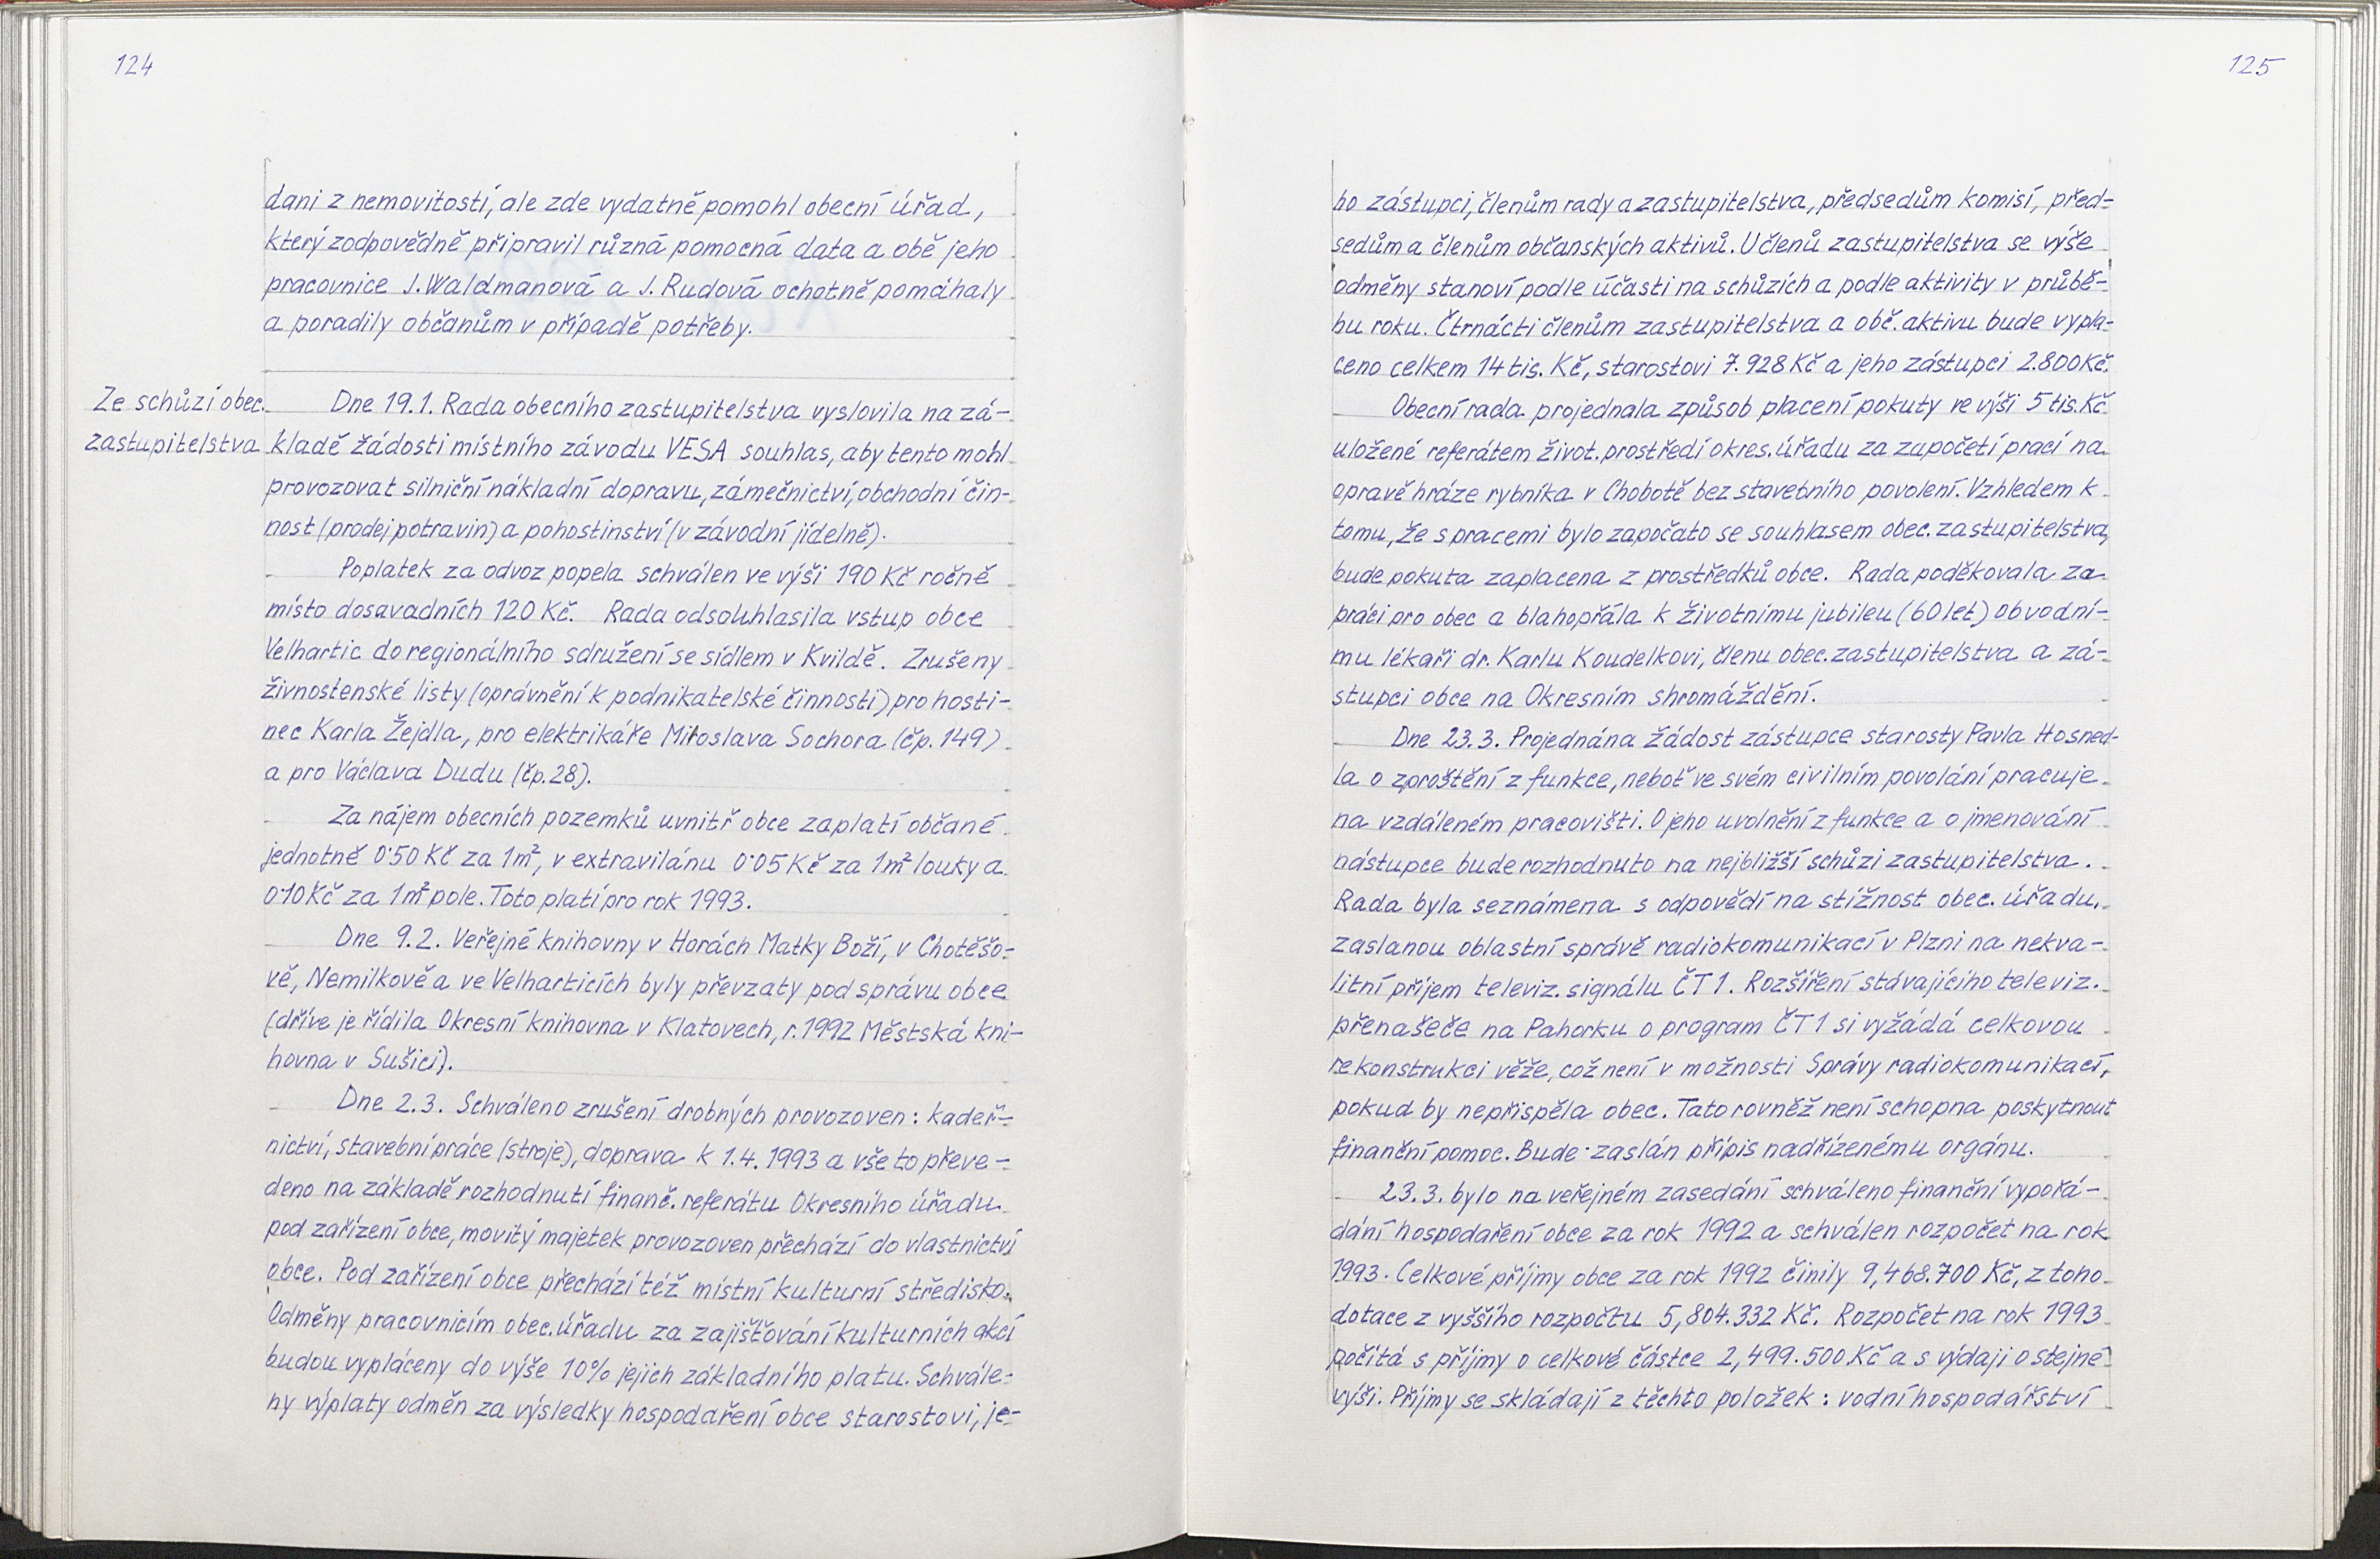 124
dani z nemovitostí, ale zde vydatně pomohl obecní úřad,
který zodpovědně připravil různá pomocná data a obě jeho
pracovnice J. Waldmanová a J. Rudová ochotně pomáhaly
a poradily občanům v případě potřeby.
Ze schůzí obec.
zastupitelstva
Dne 19.1. Rada obecního zastupitelstva vyslovila na zá-
kladě žádosti místního závodu VESA souhlas, aby tento mohl
provozovat silniční nákladní dopravu, zámečnictví, obchodní čin-
nost (prodej potravin) a pohostinství (v závodní jídelně).
Poplatek za odvoz popela schválen ve výši 190 Kč ročně
místo dosavadních 120 Kč. Rada odsouhlasila vstup obce
Velhartic do regionálního sdružení se sídlem v Kvildě. Zrušeny
živnostenské listy (oprávnění k podnikatelské činnosti) pro hosti-
nec Karla Žejdla, pro elektrikáře Miroslava Sochora (čp. 149)
a pro Václava Dudu (čp. 28).
Za nájem obecních pozemků uvnitř obce zaplatí občané
jednotně 0·50 Kč za 1m², v extravilánu 0·05 Kč za 1m² louky a
0·10 Kč za 1m² pole. Toto platí pro rok 1993.
Dne 9.2. Veřejné knihovny v Horách Matky Boží, v Chotěšo-
vě, Nemilkově a ve Velharticích byly převzaty pod správu obce
(dříve je řídila Okresní knihovna v Klatovech, r. 1992 Městská kni-
hovna v Sušici).
Dne 2.3. Schváleno zrušení drobných provozoven: kadeř-
nictví, stavební práce (stroje), doprava k 1.4. 1993 a vše to převe-
deno na základě rozhodnutí finanč. referátu Okresního úřadu
pod zařízení obce, movitý majetek provozoven přechází do vlastnictví
obce. Pod zařízení obce přechází též místní kulturní středisko.
Odměny pracovnicím obec. úřadu za zajišťování kulturních akcí
budou vypláceny do výše 10% jejich základního platu. Schvále-
ny výplaty odměn za výsledky hospodaření obce starostovi, je-
125
ho zástupci, členům rady a zastupitelstva, předsedům komisí, před-
sedům a členům občanských aktivů. U členů zastupitelstva se výše
odměny stanoví podle účasti na schůzích a podle aktivity v průbě-
hu roku. Čtrnácti členům zastupitelstva a obč. aktivu bude vypla-
ceno celkem 14 tis. Kč, starostovi 7.928 Kč a jeho zástupci 2.800 Kč.
Obecní rada projednala způsob placení pokuty ve výši 5 tis. Kč
uložené referátem život. prostředí okres. úřadu za započetí prací na
opravě hráze rybníka v Chobotě bez stavebního povolení. Vzhledem k
tomu, že s pracemi bylo započato se souhlasem obec. zastupitelstva,
bude pokuta zaplacena z prostředků obce. Rada poděkovala za
práci pro obec a blahopřála k životnímu jubileu (60 let) obvodní-
mu lékaři dr. Karlu Koudelkovi, členu obec. zastupitelstva a zá-
stupci obce na Okresním shromáždění.
Dne 23.3. Projednána žádost zástupce starosty Pavla Hosned-
la o zproštění z funkce, neboť ve svém civilním povolání pracuje
na vzdáleném pracovišti. O jeho uvolnění z funkce a o jmenování
nástupce bude rozhodnuto na nejbližší schůzi zastupitelstva.
Rada byla seznámena s odpovědí na stížnost obec. úřadu,
zaslanou oblastní správě radiokomunikací v Plzni na nekva-
litní příjem televiz. signálu ČT 1. Rozšíření stávajícího televiz.
přenašeče na Pahorku o program ČT 1 si vyžádá celkovou
rekonstrukci věže, což není v možnosti Správy radiokomunikací,
pokud by nepřispěla obec. Tato rovněž není schopna poskytnout
finanční pomoc. Bude zaslán přípis nadřízenému orgánu.
23.3. bylo na veřejném zasedání schváleno finanční vypořá-
dání hospodaření obce za rok 1992 a schválen rozpočet na rok
1993. Celkové příjmy obce za rok 1992 činily 9,468.700 Kč, z toho
dotace z vyššího rozpočtu 5,804.332 Kč. Rozpočet na rok 1993
počítá s příjmy o celkové částce 2,499.500 Kč a s výdaji o stejné
výši. Příjmy se skládají z těchto položek: vodní hospodářství